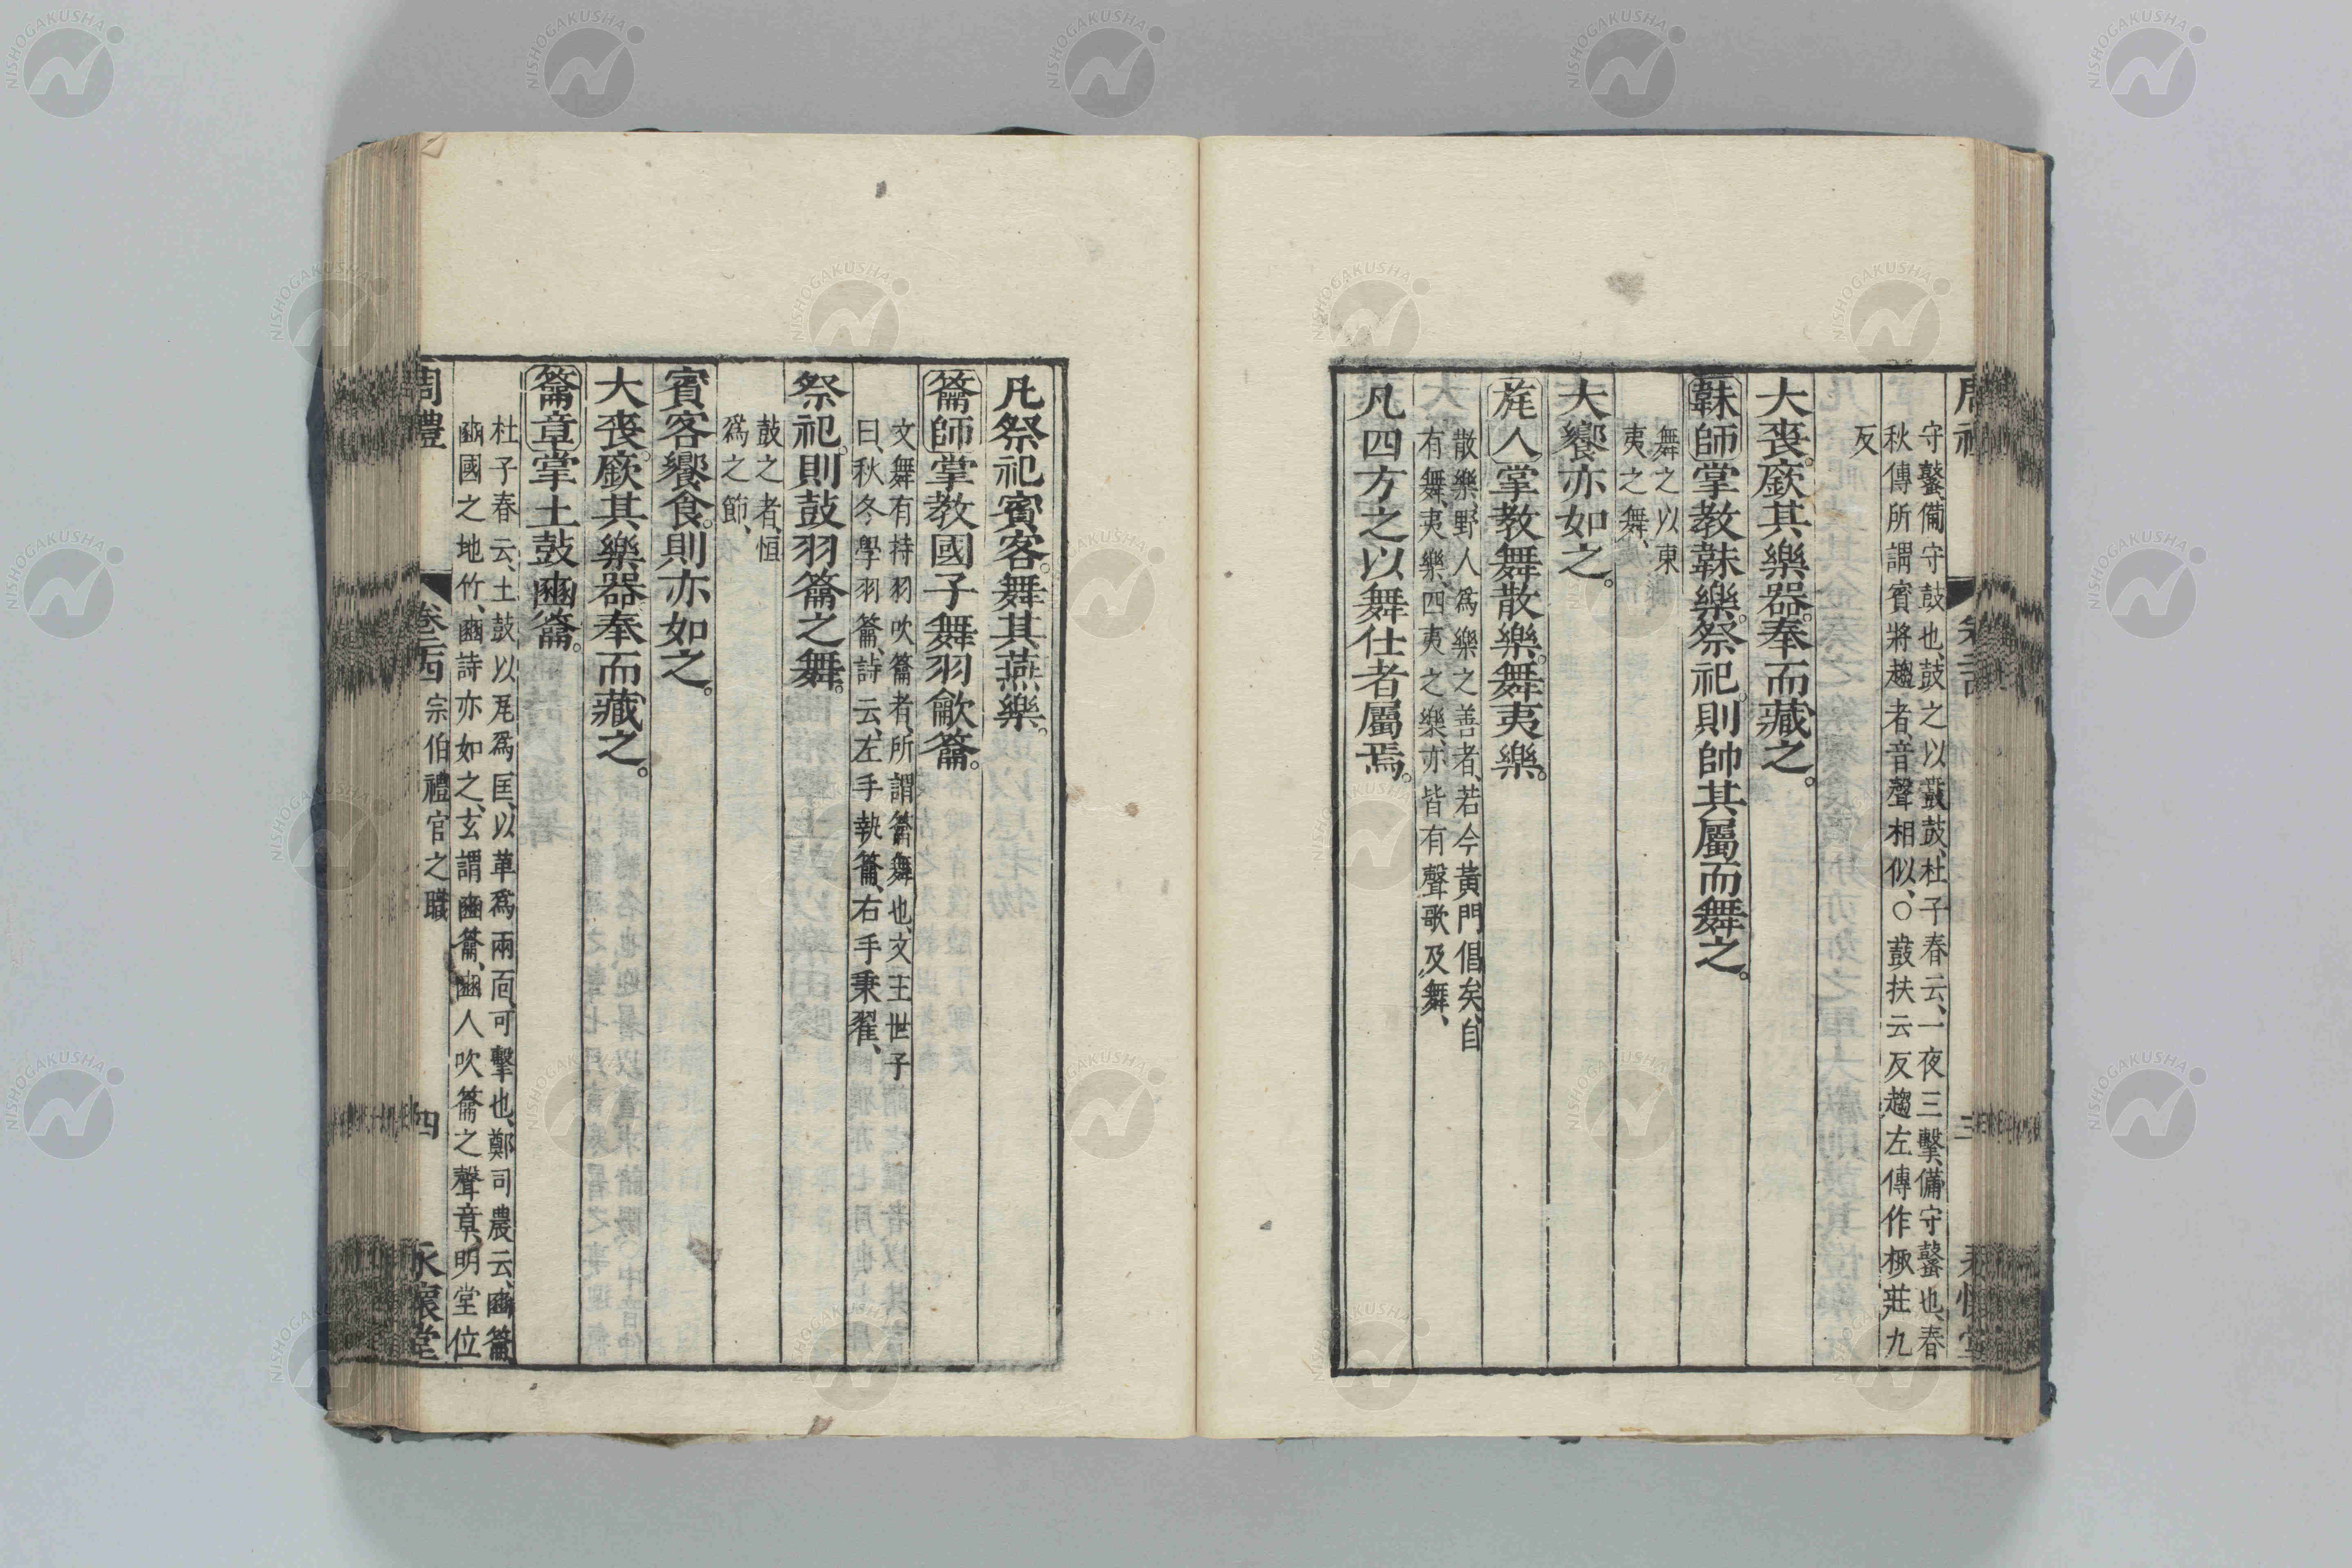 守鼜、備守鼓也、鼓之以鼖鼓、杜子春云、一夜三擊、備守鼜也、春
秋傳所謂賓將趨者、音聲相似、○鼓扶云反趨左傳作掫莊九
反
大喪。廞其樂器。奉而藏之。
韎師掌教韎樂。祭祀。則帥其屬而舞之。
舞之以東
夷之舞、
大饗亦如之。
旄人掌教舞散樂。舞夷樂。
散樂、野人爲樂之善者、若今黃門倡矣、自
有舞、夷樂、四夷之樂、亦皆有聲歌及舞、
凡四方之以舞仕者屬焉。
三
凡祭祀賓客。舞其燕樂。
籥師掌教國子舞羽龡籥。
文舞有持羽吹籥者、所謂籥舞也、文王世子
曰、秋冬學羽籥、詩云、左手執籥、右手秉翟、
祭祀。則鼓羽籥之舞。
鼓之者、恒
爲之節、
賓客饗食。則亦如之。
大喪。廞其樂器奉而藏之。
籥章掌土鼓豳籥。
杜子春云、土鼓以瓦爲匡、以革爲兩面、可擊也、鄭司農云、豳籥
豳國之地竹、豳詩亦如之、玄謂豳籥、豳人吹籥之聲章、明堂位
周禮 卷二四 宗伯禮官之職 四 永懷堂
NISHOGAKUSHA